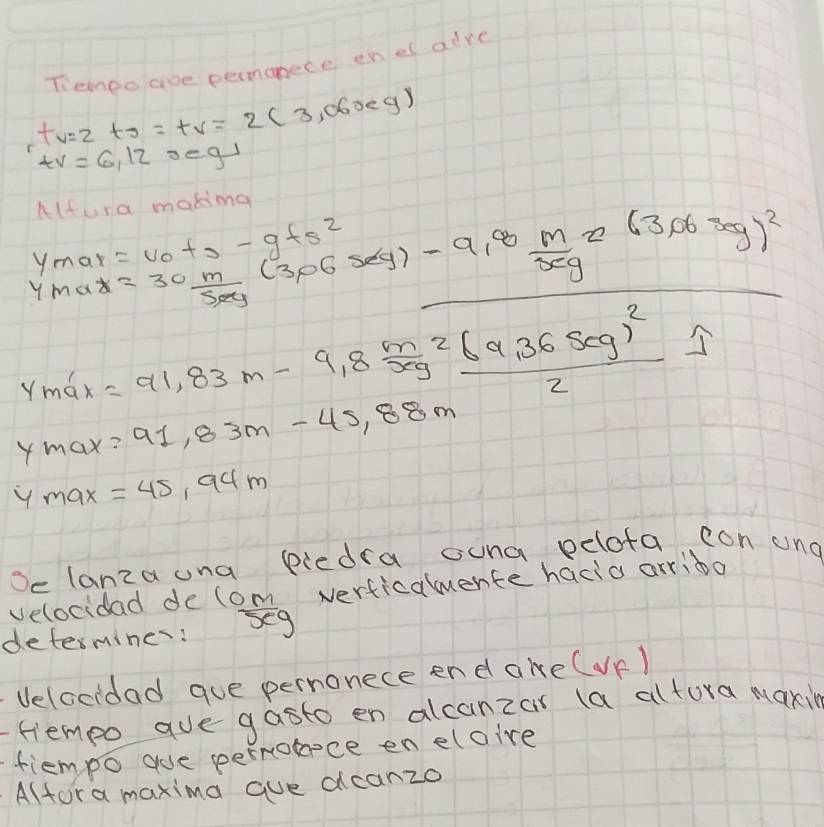 Tiempo que permanece en el aire
tv=2 ts = tv= 2(3,06seg)
tv = 6,12 seg
Altura maxima
ymax= vots - gts²
ymax= 30 m/seg (3,06 seg) - 9,8 m/seg² (3,06 seg)²
ymáx= 91,83 m - 9,8 m/seg² (9,36 seg)² / 2
ymax= 91,83m - 45,88m
ymax = 45,94m
Se lanza una piedra o una pelota con una
velocidad de 10m/seg verticalmente hacia arriba
determines:
- Velocidad que permanece en el aire (VF)
- tiempo que gasto en alcanzar la altura maxim
- tiempo que permanece en el aire
- Altura maxima que alcanzo